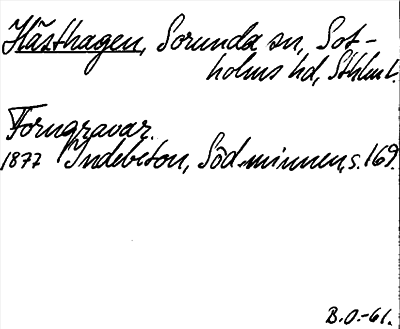 Hästhagen, Sorunda sn, Sot-
holms hd, Sthlm l.
Forngravar.
1877 Indebetou, Söd.minnen, s. 169.
B.O.-61.